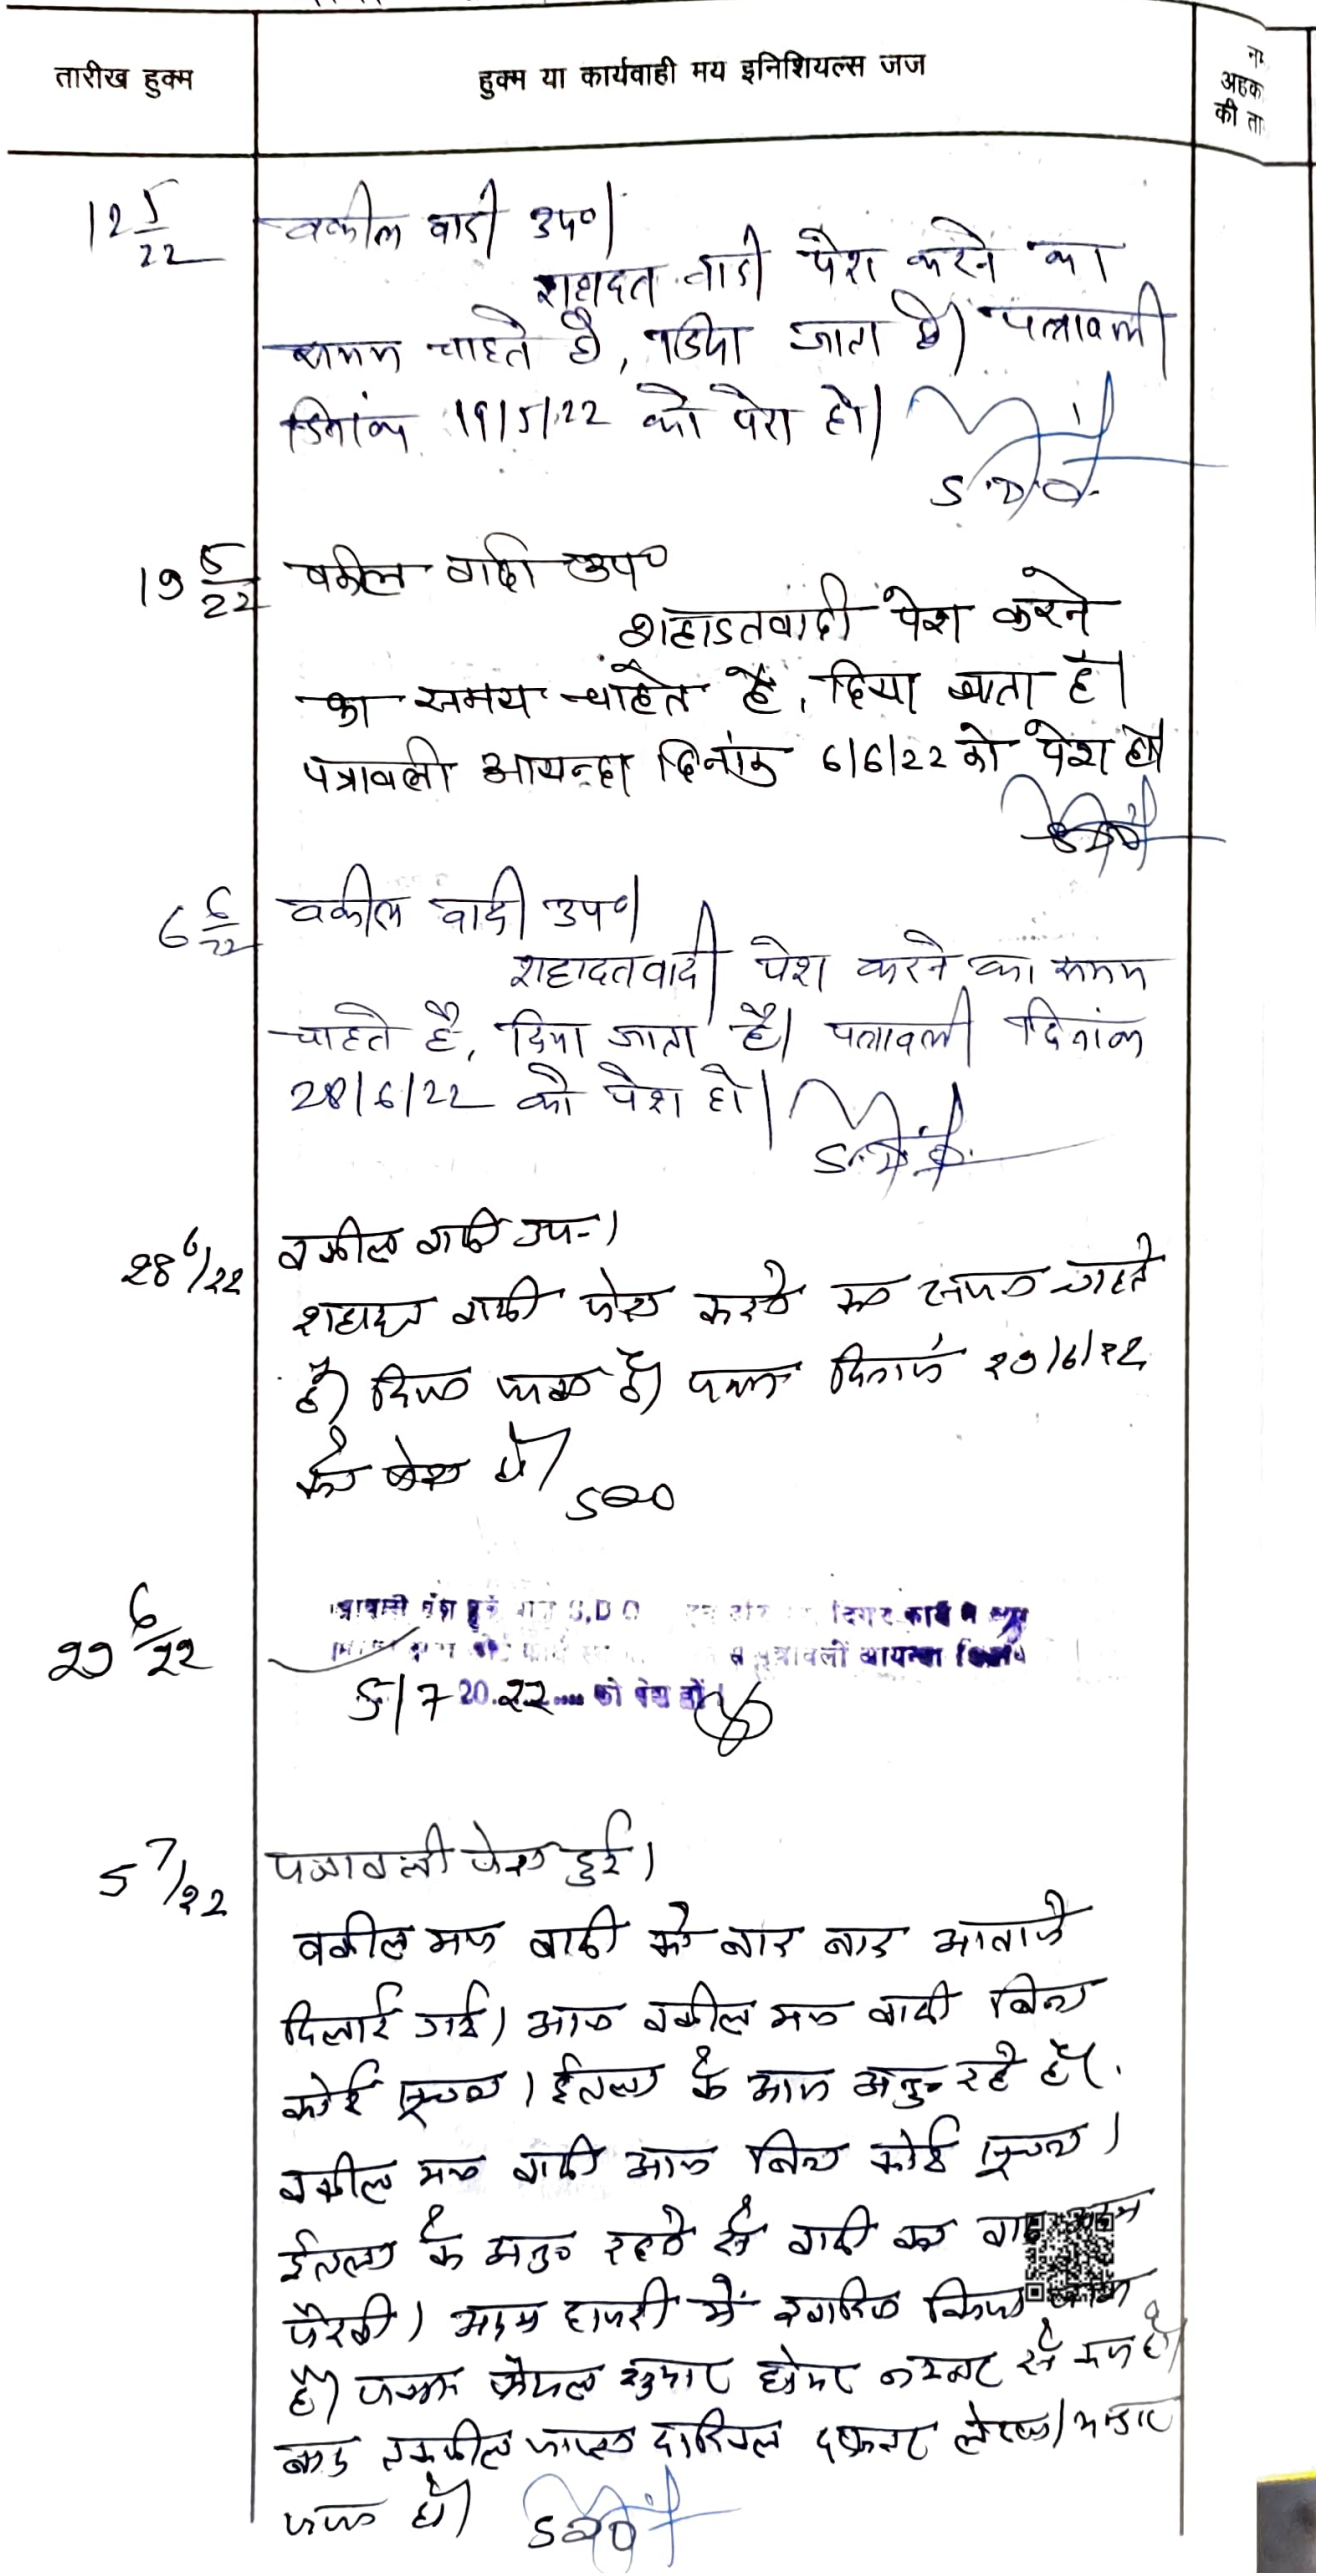 तारीख हुक्म
हुक्म या कार्यवाही मय इनिशियल्स जज
अहक
की ता
12 5/22
वकील वादी उप०।
शहादत वादी पेश करने का
समय चाहते है, दिया जाता है। पत्रावली
दिनांक 19/5/22 को पेश हो।
S.D.O.
19 5/22
वकील वादी उप०
शहादतवादी पेश करने
का समय चाहते है, दिया जाता है।
पत्रावली आयन्दा दिनांक 6/6/22 को पेश हो
6 6/22
वकील वादी उप०।
शहादतवादी पेश करने का समय
चाहते है, दिया जाता है। पत्रावली दिनांक
28/6/22 को पेश हो।
S.D.O.
28 6/22
वकील वादी उप०।
शहादत वादी पेश करने का समय चाहते
है। दिया जाता है। दिनांक 29/6/22
को पेश हो।
SDO
29 6/22
S.D.O दिगर कार्य में
पत्रावली आयन्दा
5/7 20.22.... को पेश हो
5 7/22
पत्रावली पेश हुई।
वकील मय वादी को बार बार आवाजे
दिलाई गई। आज वकील मय वादी बिना
कोई सूचना। ईतला के आज अनु० रहे है।
वकील मय वादी आज बिना कोई सूचना।
ईतला के अनु० रहने से वादी का वाद अदम
पैरवी। अदम हाजरी में खारिज किया जाता
है। फैसल शुमार होकर नम्बर से कम हो
बाद तकमील दाखिल दफ्तर
हो। SDO